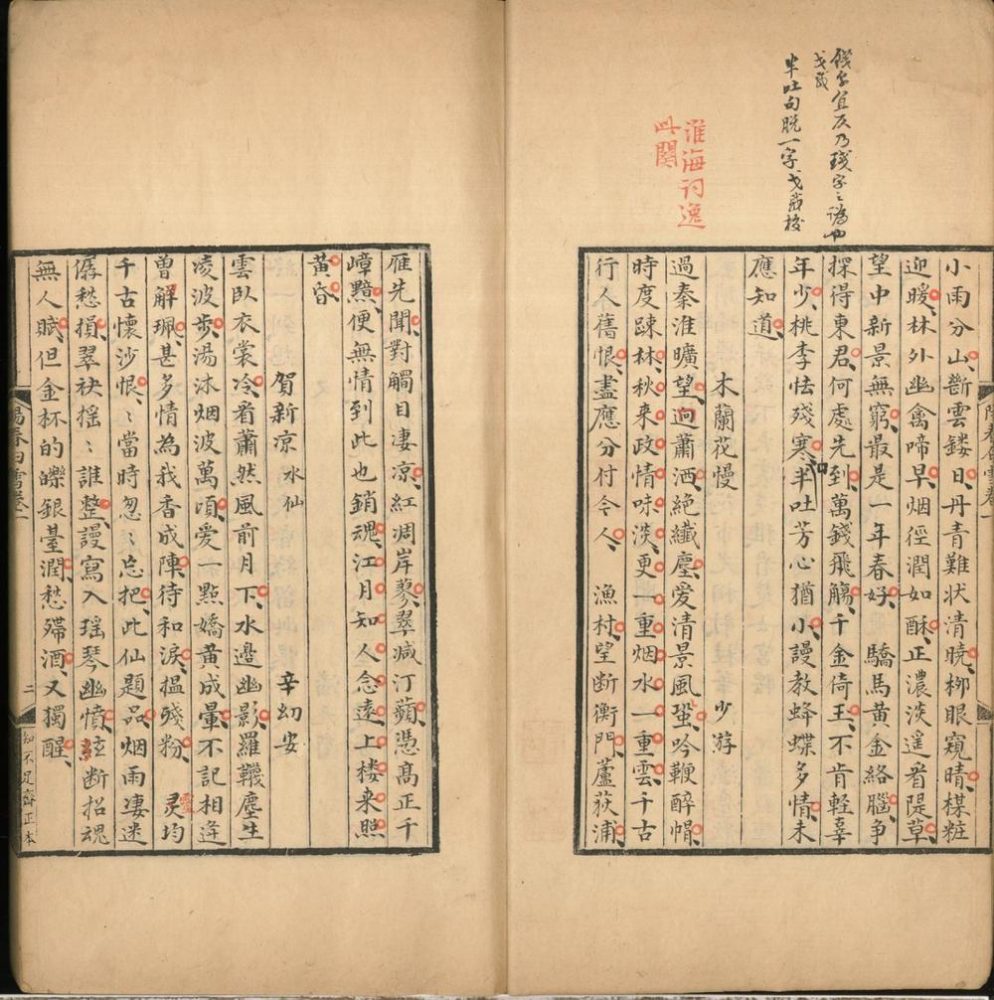 錢字宜仄乃殘字之譌也
戈載
半吐句脫一字戈校
淮海詞逸
此闋
陽春白雪卷一
小雨分山斷雲鏤日丹青難状清曉柳眼窺晴楳粧
迎暖林外幽禽啼早烟徑潤如酥正濃淡遥看隄草
望中新景無窮最是一年春好 驕馬黃金絡腦爭
探得東君何處先到萬錢飛觴千金倚玉不肯軽辜
年少桃李怯殘寒半吐芳心猶小謾教蜂蝶多情未
應知道
木蘭花慢 少游
過秦淮曠望迥蕭洒絶纎塵愛清景風蛩吟鞭醉帽
時度踈林秋来政情味淡更一重烟水一重雲千古
行人舊恨盡應分付今人 漁村望断衡門蘆荻浦
雁先聞對觸目凄凉紅凋岸蓼翠减汀蘋憑髙正千
嶂黯便無情到此也銷魂江月知人念逺上楼来照
黄昏
賀新凉 水仙 辛幼安
雲卧衣裳冷看蕭然風前月下水邊幽影羅韈塵生
凌波步湯沐烟波萬頃愛一點嬌黄成暈不記相逢
曾解珮甚多情為我香成陣待和淚揾殘粉 灵均
千古懷沙恨〻當時怱〻忘把此仙題品烟雨凄迷
僝愁損翠袂揺〻誰整謾寫入瑶琴幽憤絃断招魂
無人賦但金杯的皪銀臺潤愁殢酒又獨醒
陽春白雪卷一 二 知不足齋正本